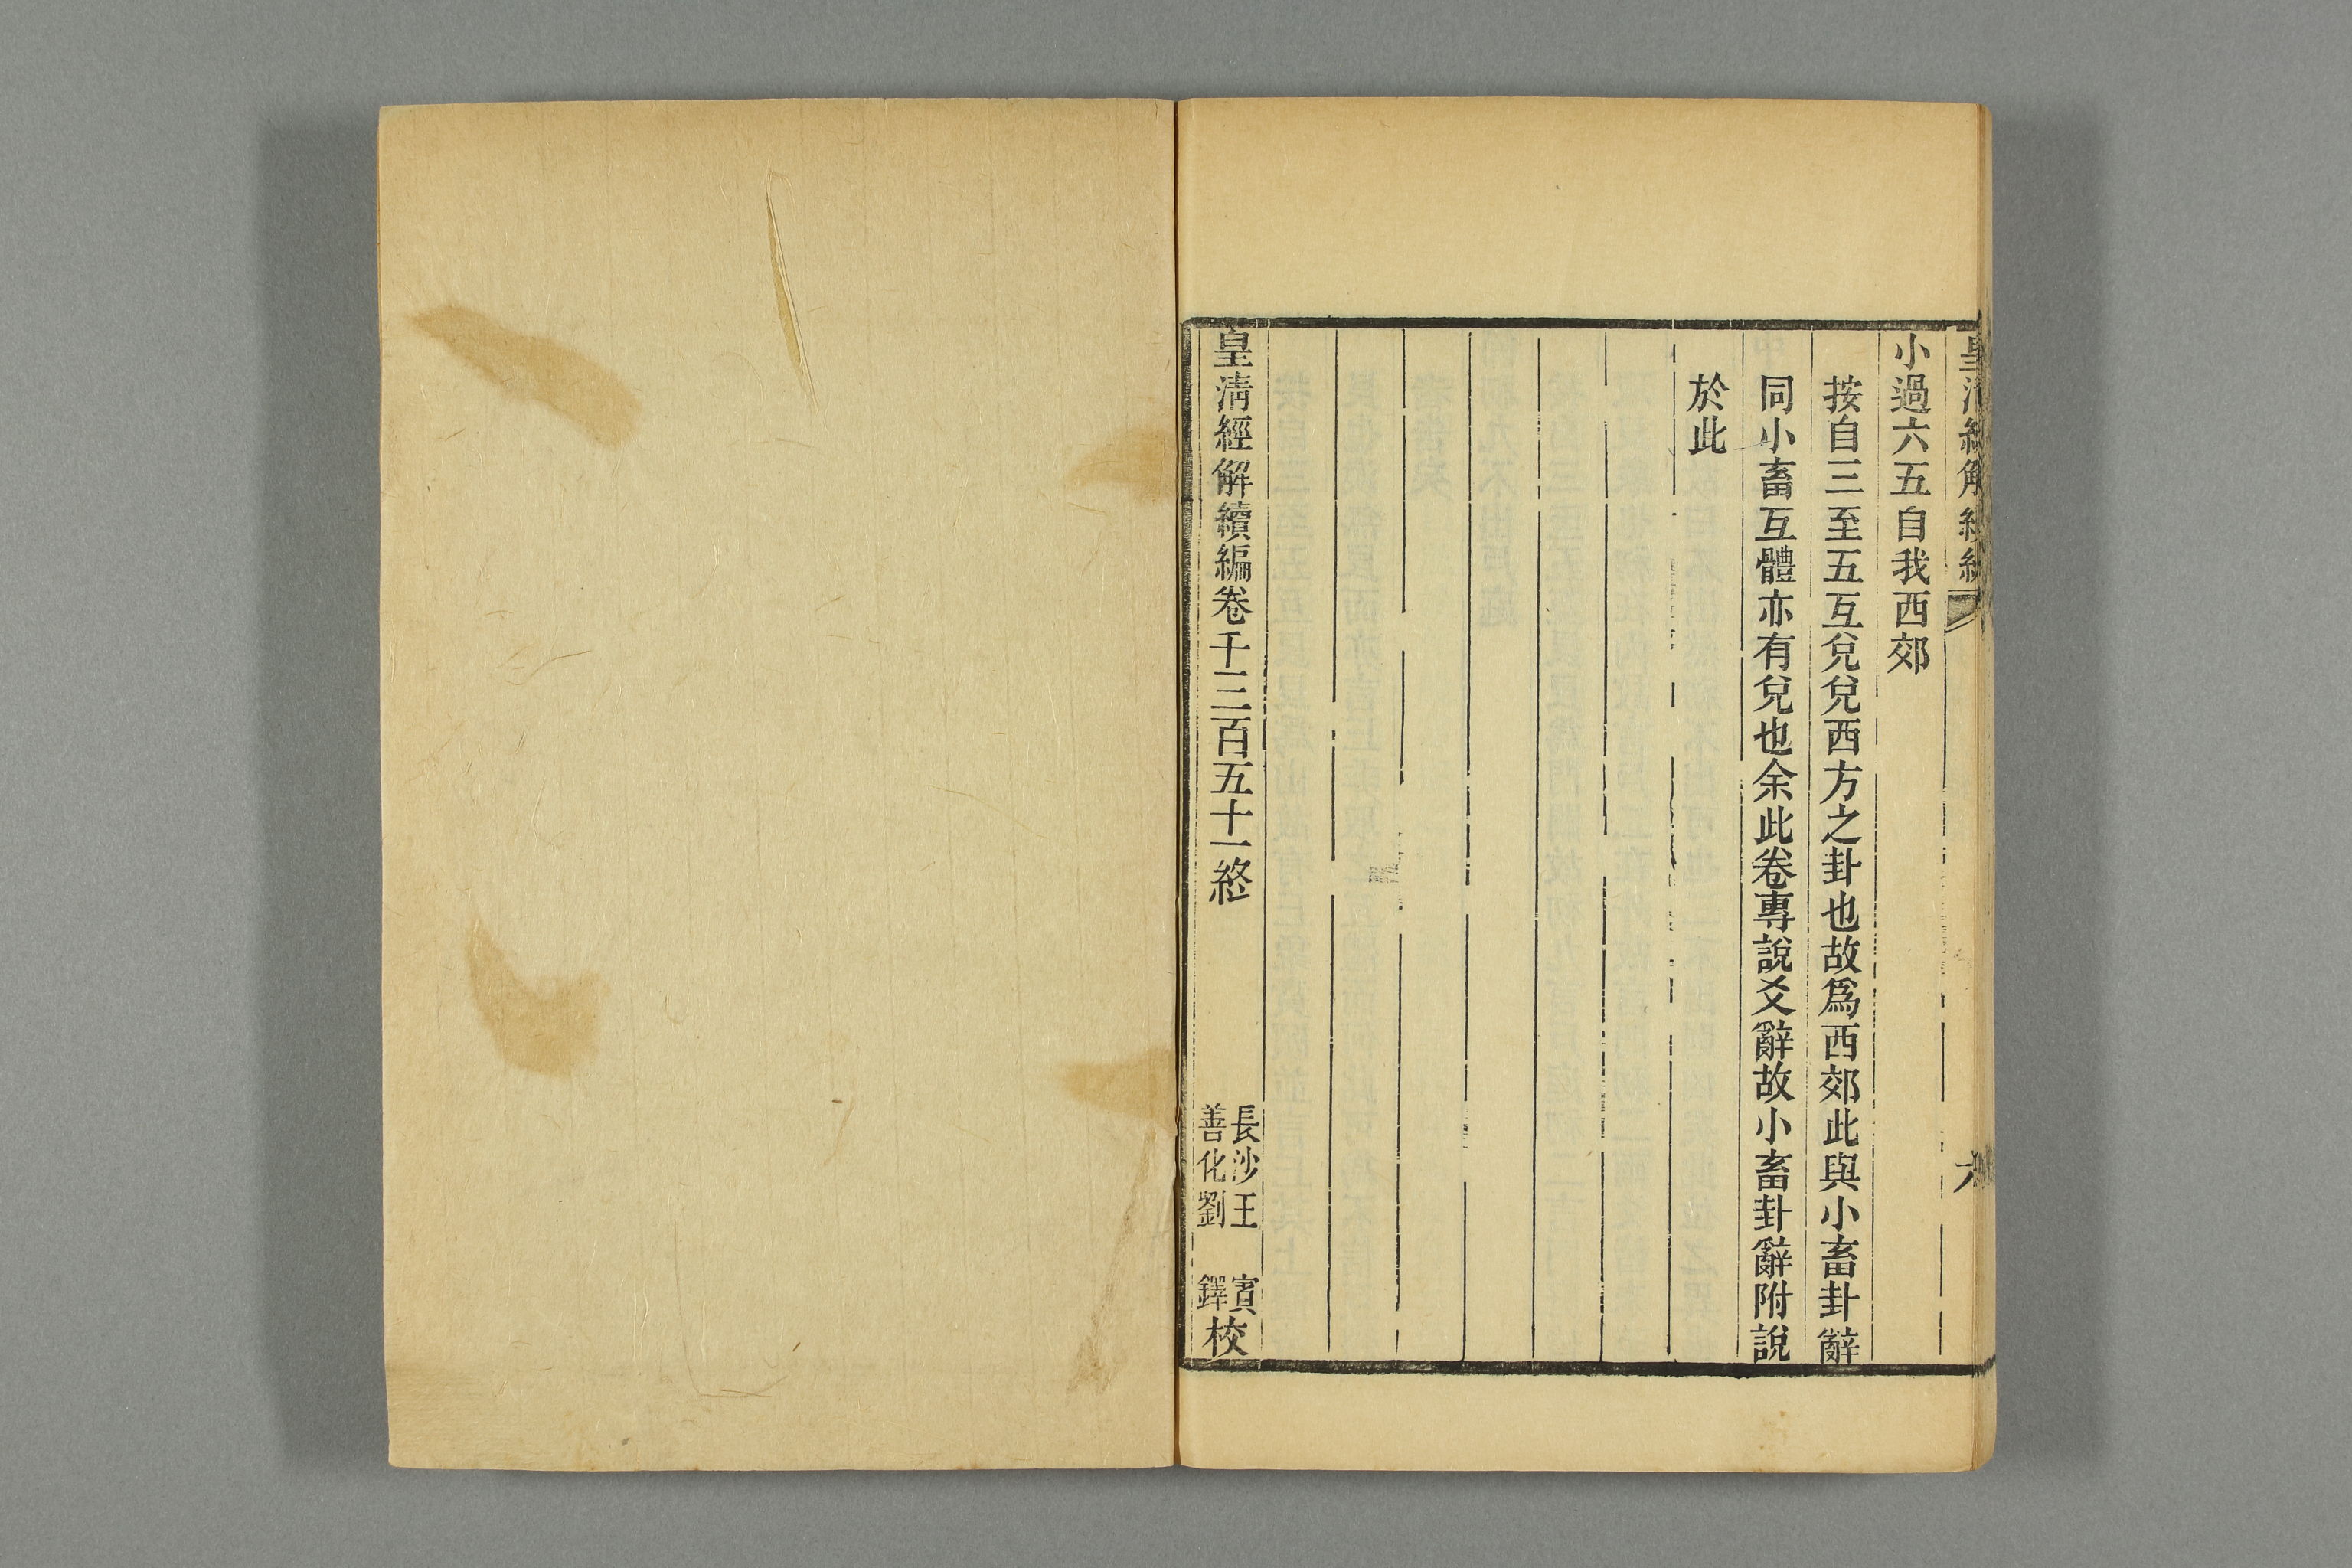 皇清經解續編
六
小過六五自我西郊
按自三至五互兌兌西方之卦也故爲西郊此與小畜卦辭
同小畜互體亦有兌也余此卷專說爻辭故小畜卦辭附說
於此
皇淸經解續編卷千三百五十一終
長沙王 賓
善化劉 鐸
校